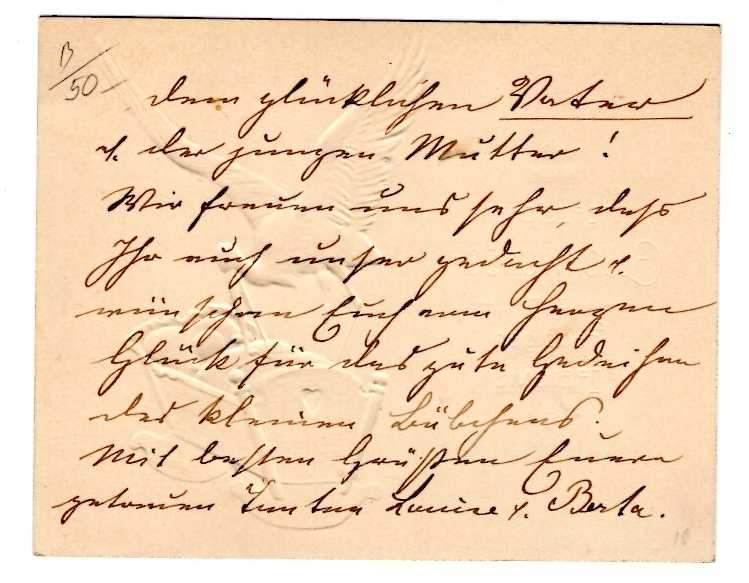 B/50
dem glücklichen Vater
u. der jungen Mutter!
Wir freuen uns sehr, dass
Ihr auch unser gedacht u.
wünschen Euch von Herzen
Glück für das gute Gedeihen
des kleinen Bübchens.
Mit besten Grüßen Euere
getreuen Tanten Louise u. Berta.
18